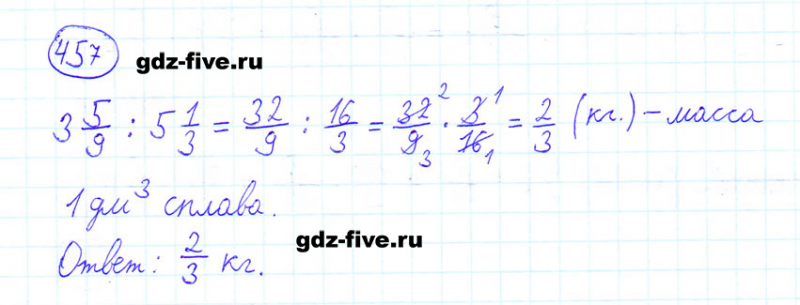 457 gdz-five.ru
3 5/9 : 5 1/3 = 32/9 : 16/3 = 32 2/9 3 · 3 1/16 1 = 2/3 (кг.) – масса
1 дм³ сплава.
gdz-five.ru
Ответ: 2/3 кг.